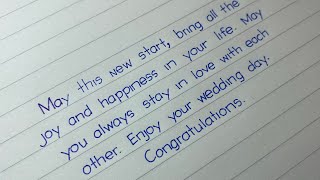 May this new start, bring all the
joy and happiness in your life. May
you always stay in love with each
other. Enjoy your wedding day.
Congratulations.